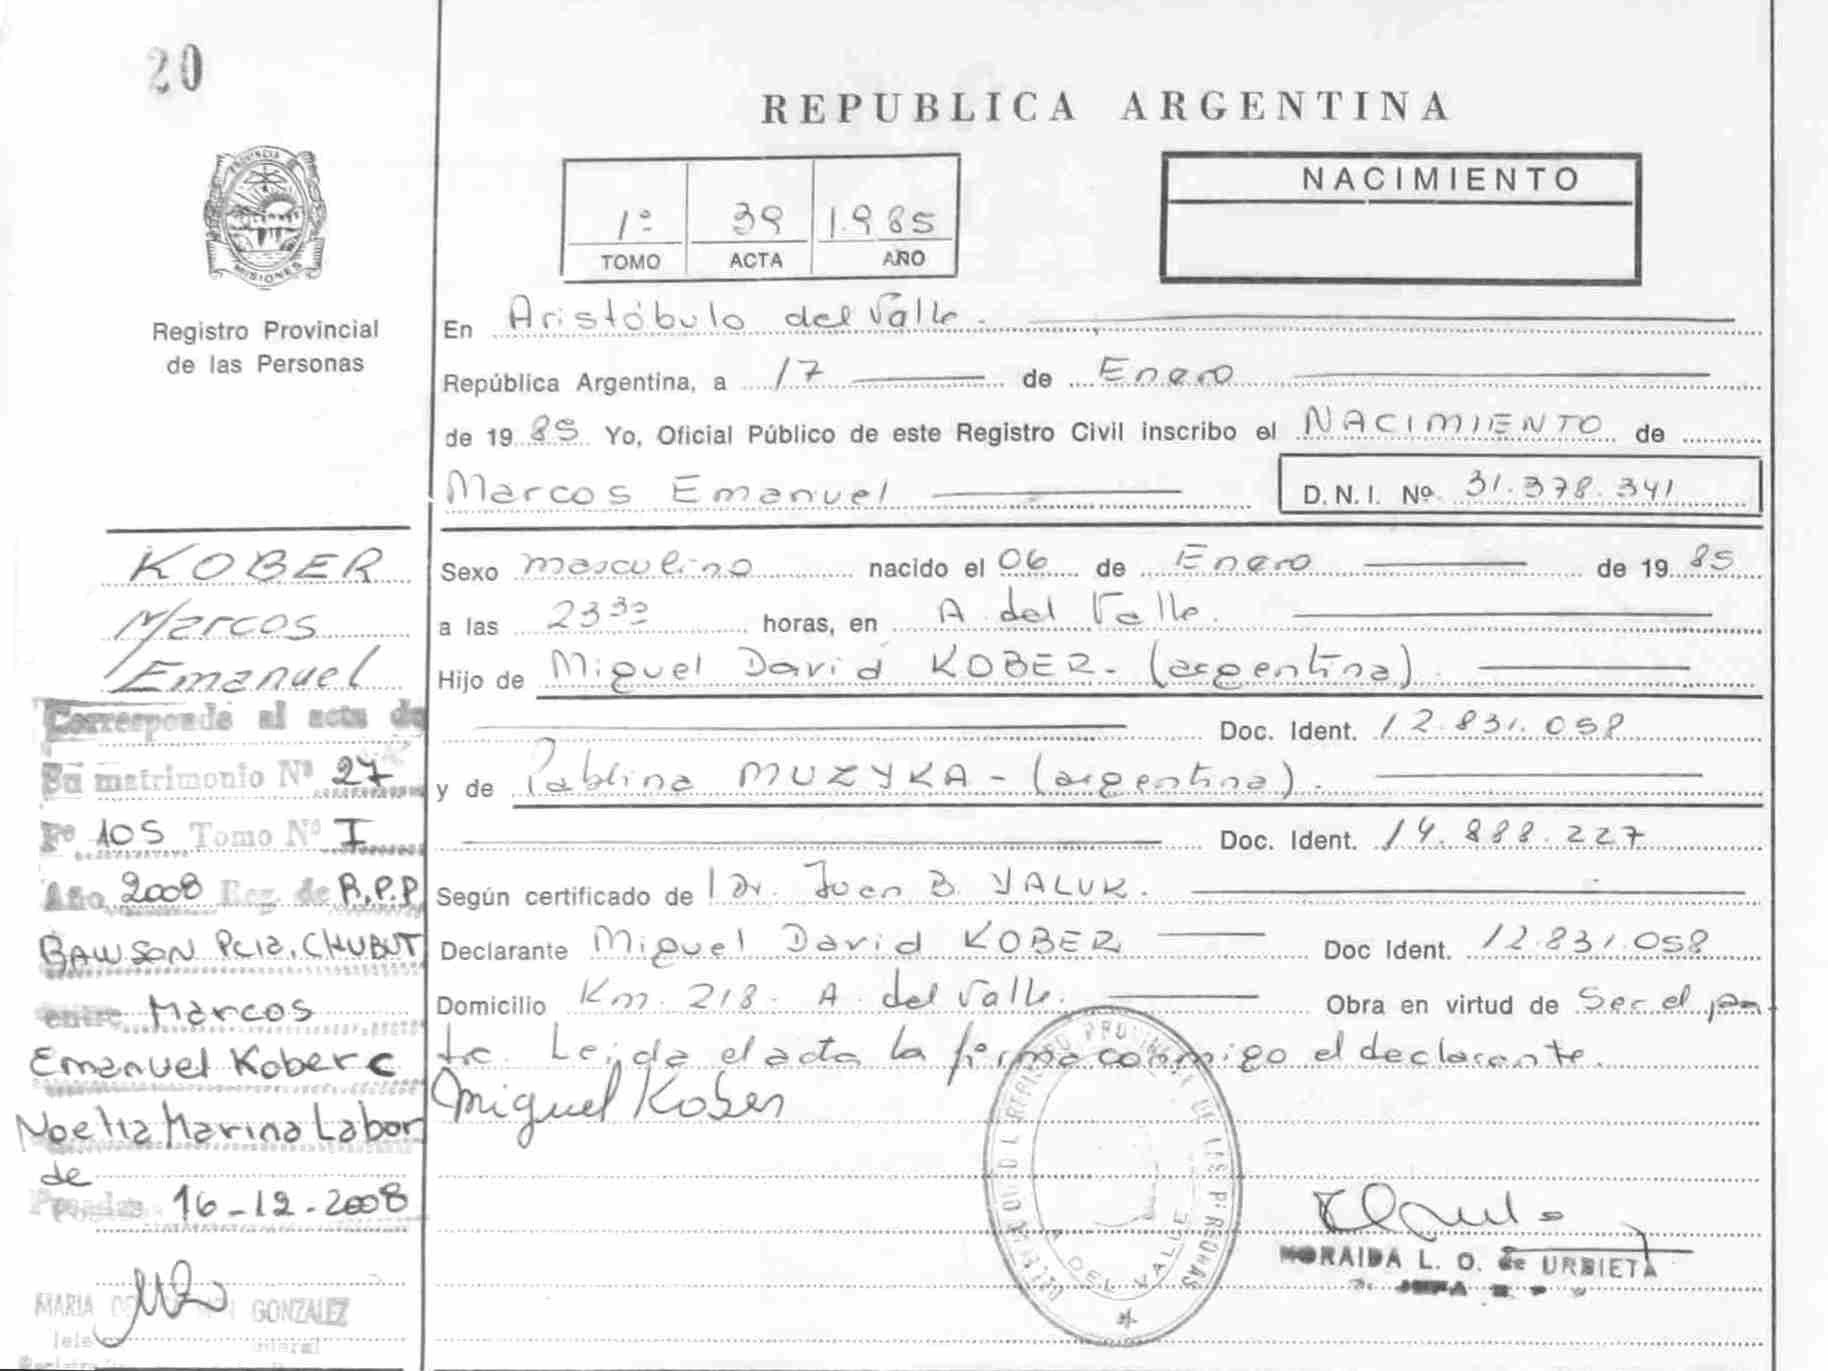 20
REPUBLICA ARGENTINA
PROVINCIA DE
MISIONES
Registro Provincial
de las Personas
1º 39 1.985
TOMO ACTA AÑO
NACIMIENTO
En Aristóbulo del Valle.
República Argentina, a 17 de Enero
de 19 85 Yo, Oficial Público de este Registro Civil inscribo el NACIMIENTO de
Marcos Emanuel
D.N.I. Nº 31.378.341
KOBER
Marcos
Emanuel
Corresponde al acta de
Su matrimonio Nº 27
Fº 105 Tomo Nº I
Año 2008 Reg. de R.P.P
RAWSON Pcia. CHUBUT
entre Marcos
Emanuel Kober c
Noelia Marina Labor
de
Posadas 16-12-2008
MARIA GONZALEZ
Sexo masculino nacido el 06 de Enero de 19 85
a las 23 30 horas, en A. del Valle.
Hijo de Miguel David KOBER - (argentina)
Doc. Ident. 12.831.058
y de Pablina MUZYKA - (argentina).
Doc. Ident. 14.888.227
Según certificado de Dr. Juan B. YALUK.
Declarante Miguel David KOBER Doc Ident. 12.831.058
Domicilio Km. 218 - A. del Valle. Obra en virtud de Ser el pa
dre. Leida el acta la firma conmigo el declarante.
Miguel Kober
REGISTRO PROVINCIAL DE LAS PERSONAS
A. DEL VALLE
NORAIDA L. O. de URBIETA
JEFA